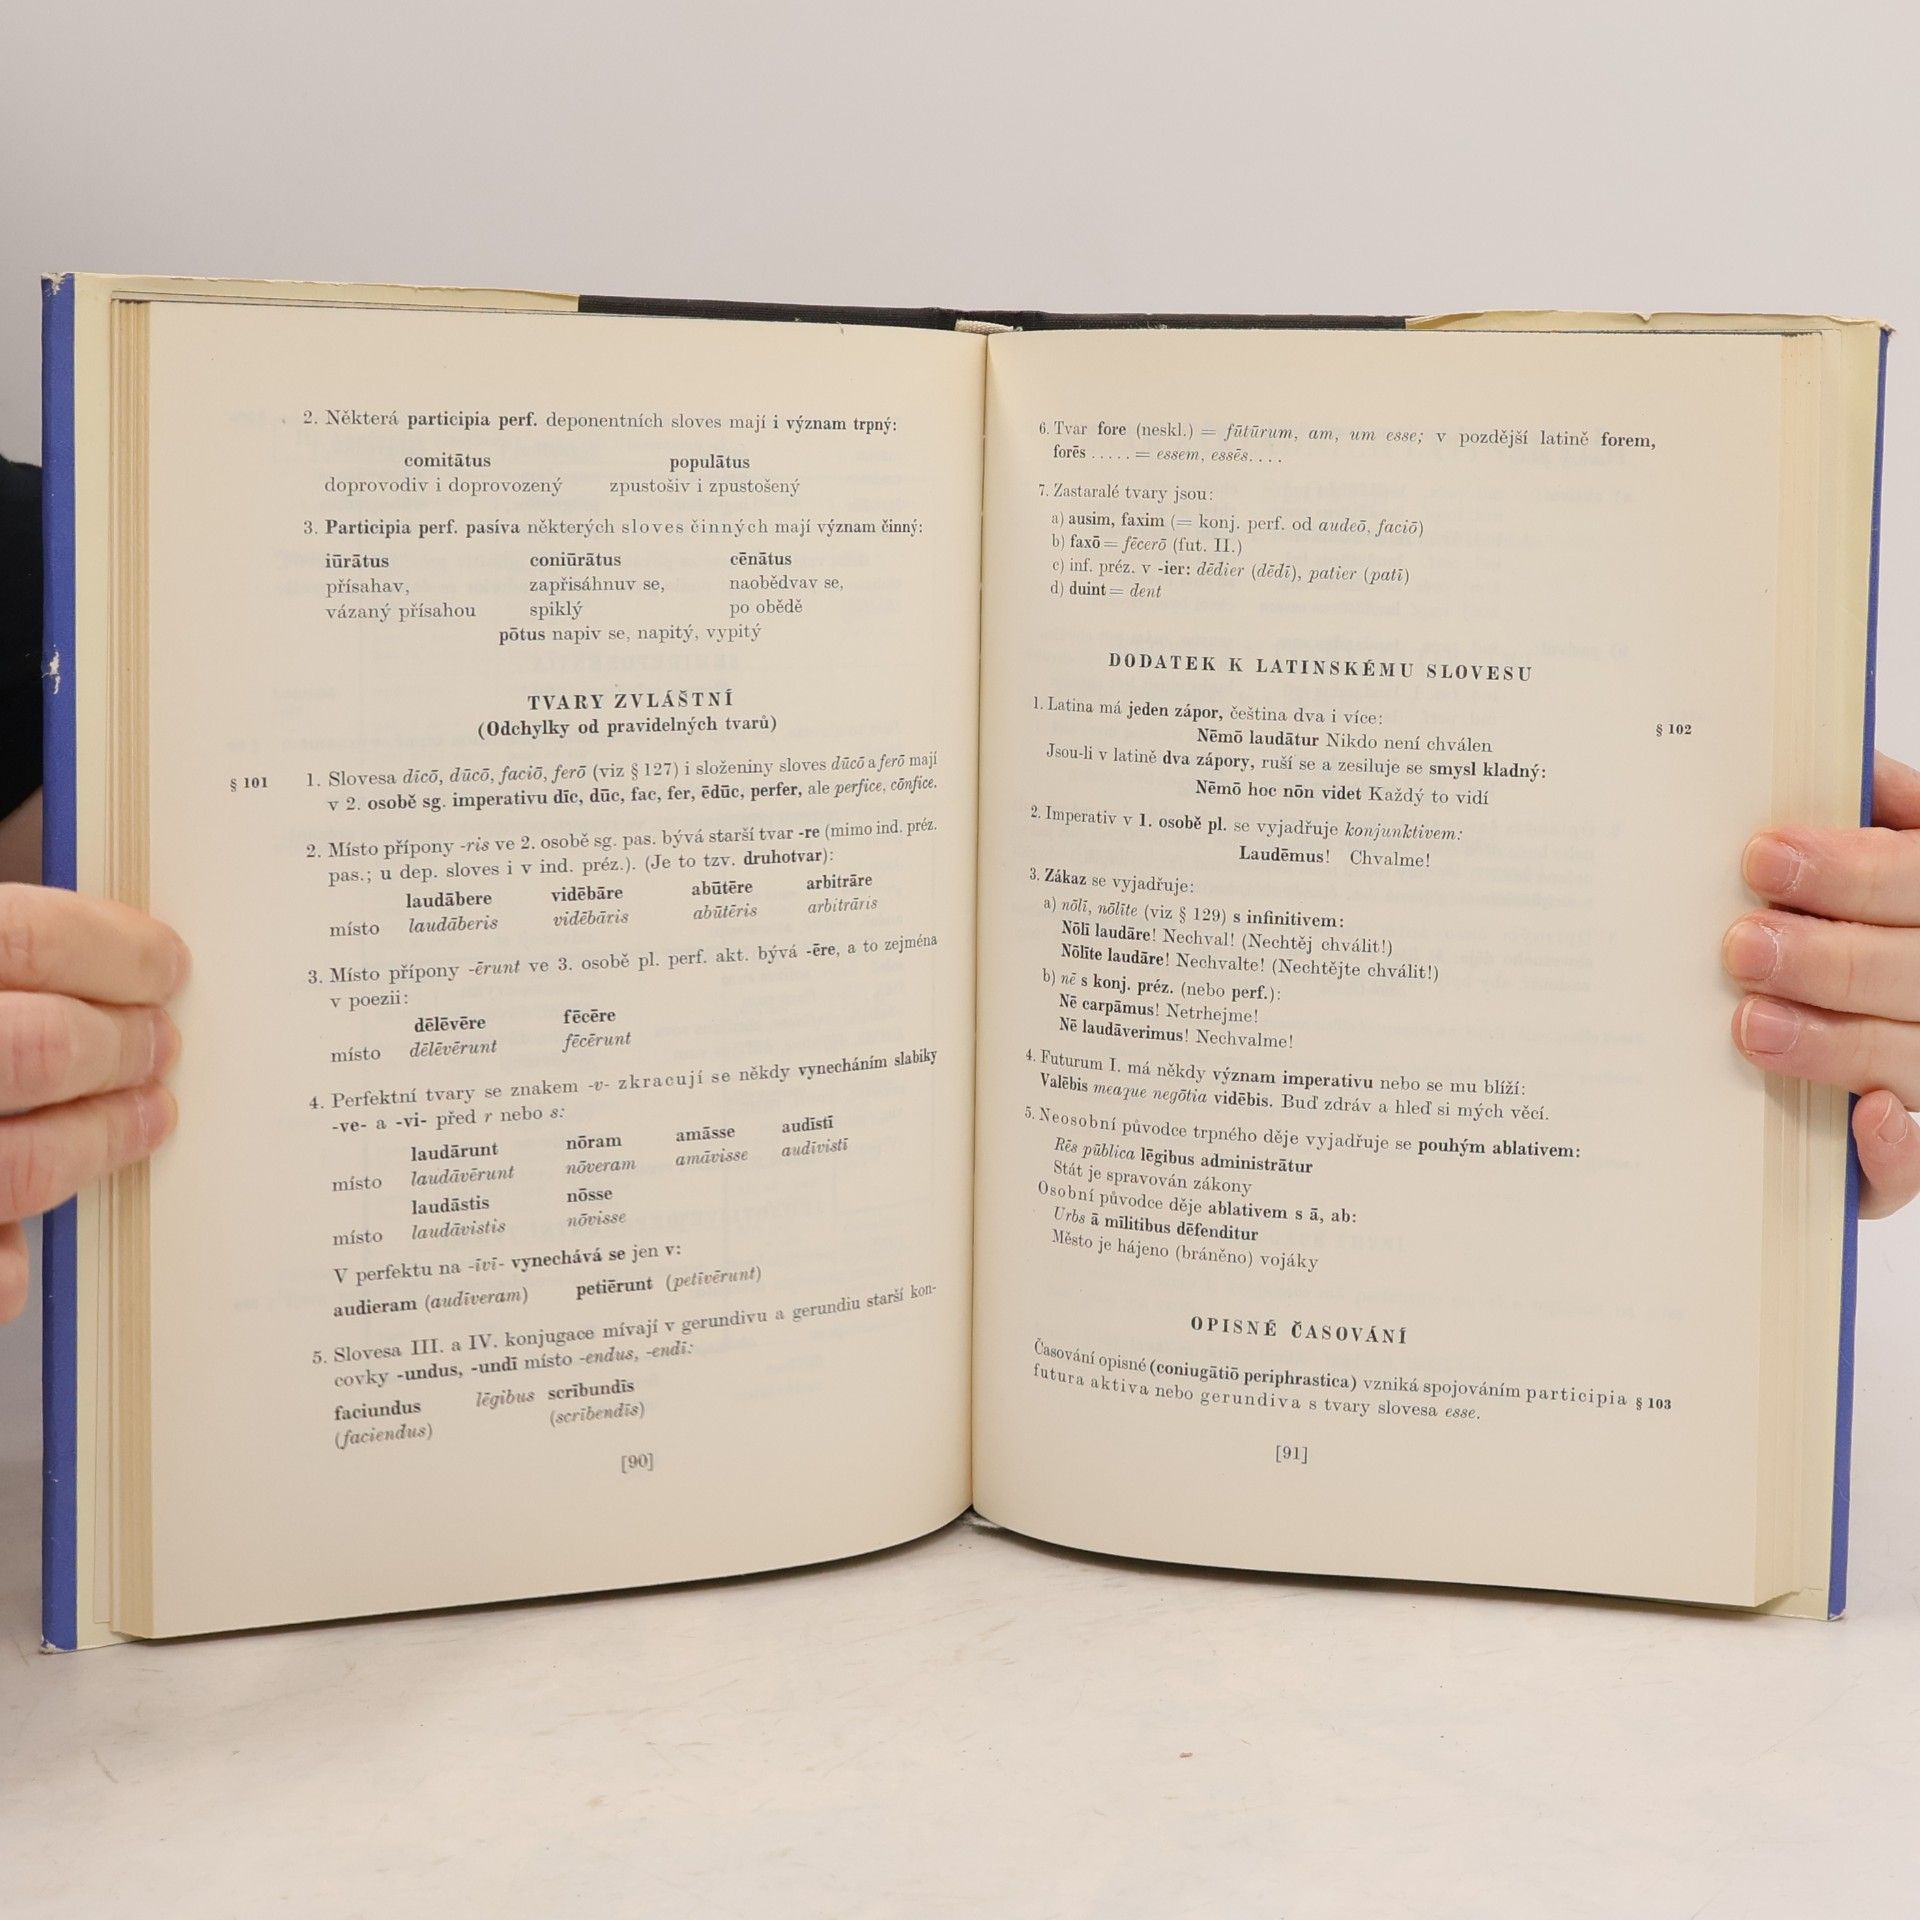 2. Některá participia perf. deponentních sloves mají i význam trpný:
comitātus populātus
doprovodiv i doprovozený zpustošiv i zpustošený
3. Participia perf. pasíva některých sloves činných mají význam činný:
iūrātus coniūrātus cēnātus
přísahav, zapřisáhnuv se, naobědvav se,
vázaný přísahou spiklý po obědě
pōtus napiv se, napitý, vypitý
TVARY ZVLÁŠTNÍ
(Odchylky od pravidelných tvarů)
§ 101 1. Slovesa dīcō, dūcō, faciō, ferō (viz § 127) i složeniny sloves dūcō a ferō mají
v 2. osobě sg. imperativu dīc, dūc, fac, fer, ēdūc, perfer, ale perfice, cōnfice.
2. Místo přípony -ris ve 2. osobě sg. pas. bývá starší tvar -re (mimo ind. préz.
pas.; u dep. sloves i v ind. préz.). (Je to tzv. druhotvar):
laudābere vidēbāre abūtēre arbitrāre
místo laudāberis vidēbāris abūtēris arbitrāris
3. Místo přípony -ērunt ve 3. osobě pl. perf. akt. bývá -ēre, a to zejména
v poezii:
dēlēvēre fēcēre
místo dēlēvērunt fēcērunt
4. Perfektní tvary se znakem -v- zkracují se někdy vynecháním slabiky
-ve- a -vi- před r nebo s:
laudārunt nōram amāsse audīstī
místo laudāvērunt nōveram amāvisse audīvistī
laudāstis nōsse
místo laudāvistis nōvisse
V perfektu na -īvī- vynechává se jen v:
audieram (audīveram) petiērunt (petīvērunt)
5. Slovesa III. a IV. konjugace mívají v gerundivu a gerundiu starší kon-
covky -undus, -undī místo -endus, -endī:
faciundus lēgibus scrībundīs
(faciendus) (scrībendīs)
[90]
6. Tvar fore (neskl.) = fūtūrum, am, um esse; v pozdější latině forem,
forēs ..... = essem, essēs....
7. Zastaralé tvary jsou:
a) ausim, faxim (= konj. perf. od audeō, faciō)
b) faxō = fēcerō (fut. II.)
c) inf. préz. v -ier: dēdier (dēdī), patier (patī)
d) duint = dent
DODATEK K LATINSKÉMU SLOVESU
1. Latina má jeden zápor, čeština dva i více:
Nēmō laudātur Nikdo není chválen § 102
Jsou-li v latině dva zápory, ruší se a zesiluje se smysl kladný:
Nēmō hoc nōn videt Každý to vidí
2. Imperativ v 1. osobě pl. se vyjadřuje konjunktivem:
Laudēmus! Chvalme!
3. Zákaz se vyjadřuje:
a) nōlī, nōlīte (viz § 129) s infinitivem:
Nōlī laudāre! Nechval! (Nechtěj chválit!)
Nōlīte laudāre! Nechvalte! (Nechtějte chválit!)
b) nē s konj. préz. (nebo perf.):
Nē carpāmus! Netrhejme!
Nē laudāverimus! Nechvalme!
4. Futurum I. má někdy význam imperativu nebo se mu blíží:
Valēbis meaque negōtia vidēbis. Buď zdráv a hleď si mých věcí.
5. Neosobní původce trpného děje vyjadřuje se pouhým ablativem:
Rēs pūblica lēgibus administrātur
Stát je spravován zákony
Osobní původce děje ablativem s ā, ab:
Urbs ā mīlitibus dēfenditur
Město je hájeno (bráněno) vojáky
OPISNÉ ČASOVÁNÍ
Časování opisné (coniugātiō periphrastica) vzniká spojováním participia § 103
futura aktiva nebo gerundiva s tvary slovesa esse.
[91]